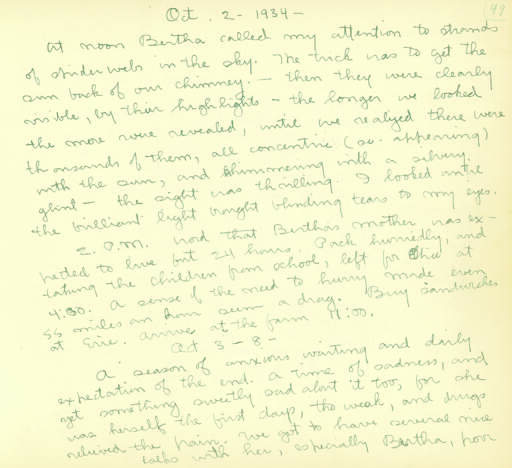 Oct. 2 - 1934 -
49
At noon Bertha called my attention to strands
of spider webs in the sky. The trick was to get the
sun back of our chimney. — then they were clearly
visible, by their highlights - the longer we looked
the more were revealed, until we realized there were
thousands of them, all concentric (or appearing)
with the sun, and shimmering with a silvery
glint — the sight was thrilling. I looked until
the brilliant light brought blinding tears to my eyes.
2. P.M. word that Berthas mother was ex-
pected to live but 24 hours. Pack hurriedly, and
taking the children from school, left for Ohio at
4:30. A sense of the need to hurry made even
55 miles an hour seem a drag. Buy sandwiches
at Erie. arrive at the farm 11:00.
Oct 3 - 8 -
A season of anxious waiting and daily
expectation of the end. A time of sadness, and
yet something sweetly sad about it too, for she
was herself the first days, tho weak, and drugs
relieved the pain. We got to have several nice
talks with her, especially Bertha, poor